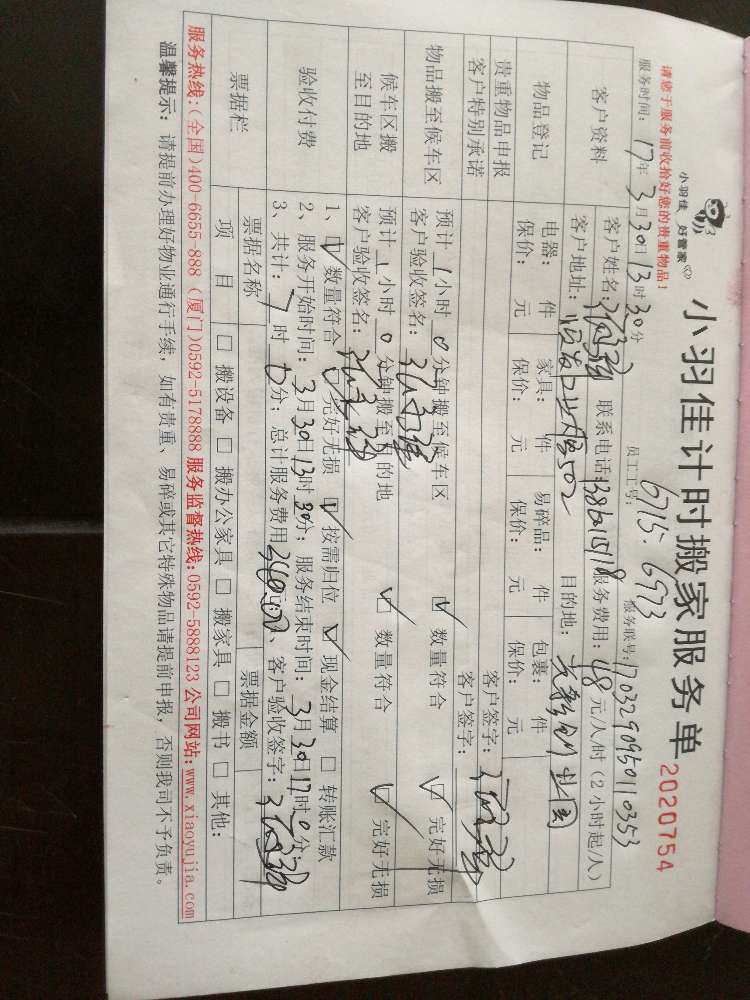 请您于服务前收拾好您的贵重物品!
小羽佳 好管家
小羽佳计时搬家服务单
2020754
服务时间: 17年 3月 30日 13时 30分
员工工号: 6715. 6973
服务联号: 170329095011 0353
客户资料
客户姓名:
联系电话:
服务费用: 48元/人/时(2小时起/人)
客户地址:
目的地:
物品登记
电器: 件 家具: 件 易碎品: 件 包裹: 件
保价: 元 保价: 元 保价: 元 保价: 元
贵重物品申报
客户签字:
客户特别承诺
客户签字:
物品搬至候车区
预计 1小时 0分钟搬至候车区 数量符合 完好无损
客户验收签名:
候车区搬至目的地
预计 1小时 0分钟搬至目的地 数量符合 完好无损
客户验收签名:
验收付费
1、数量符合 完好无损 按需归位 现金结算 转账汇款
2、服务开始时间: 3月30日13时30分; 服务结束时间: 3月30日17时0分;
3、共计: 7时0分; 总计服务费用 元; 4、客户验收签字:
票据栏
票据名称 票据金额
项 目 搬设备 搬办公家具 搬家具 搬书 其他:
服务热线:(全国)400-6655-888 (厦门)0592-5178888 服务监督热线:0592-5888123 公司网站:www.xiaoyujia.com
温馨提示: 请提前办理好物业通行手续, 如有贵重、易碎或其它特殊物品请提前申报, 否则我司不予负责。